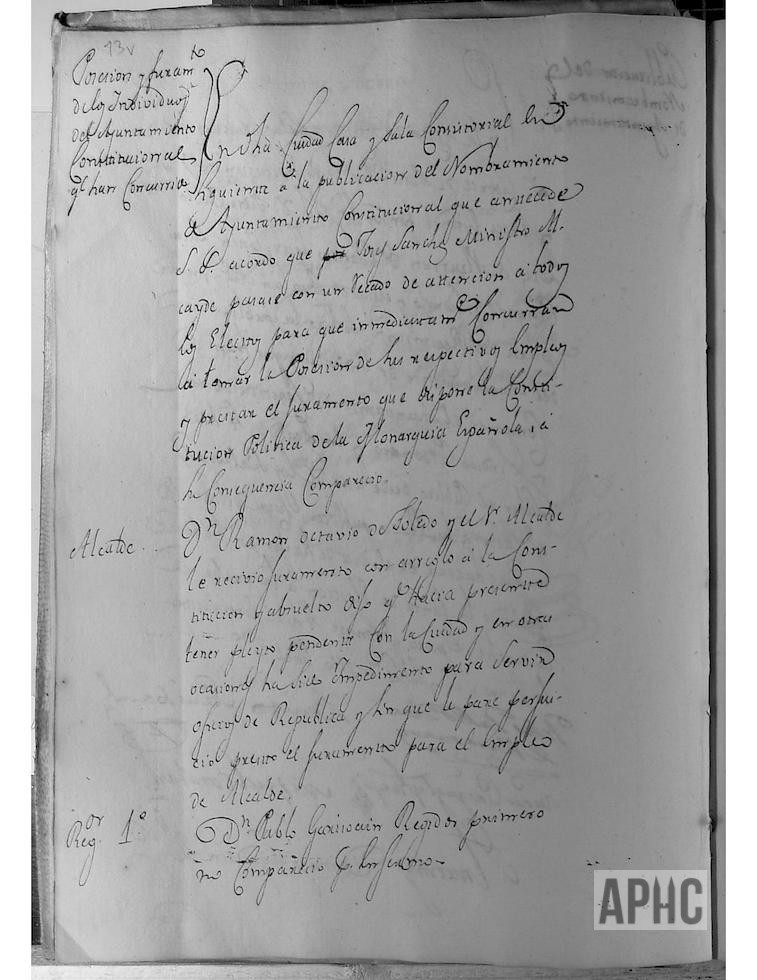 13v
Posesion y Juramto
de los Individuos
del Ayuntamiento
Constitucional
qe han Concurrido
En dha Ciudad Casa y Sala Consistorial
siguiente a la publicacion del Nombramiento
de Ayuntamiento Constitucional que antecede
S. S. acordo que Josef Sanchez Ministro Al-
cayde pasase con un Recado de attencion a todos
los Electos para que inmediatamte Concurran
a tomar la Posesion de sus respectivos Empleos
y prestar el juramento que dispone la Consti-
tucion Politica de la Monarquia Española, a
su Consequencia Comparecio.
Alcalde.
Dn Ramon Octavio de Toledo y el Sr. Alcalde
le recivio Juramento con arreglo a la Cons-
titucion y absuelto dijo qe hacia presente
tener pleyto pendiente con la Ciudad y en otras
ocasiones ha sido Impedimento para Servir
oficios de Republica y sin que le pare perjui-
cio presto el Juramento para el Empleo
de Alcalde.
Regor 1º
Dn Pablo Regidor primero
no Comparecio pr enfermo.
APHC